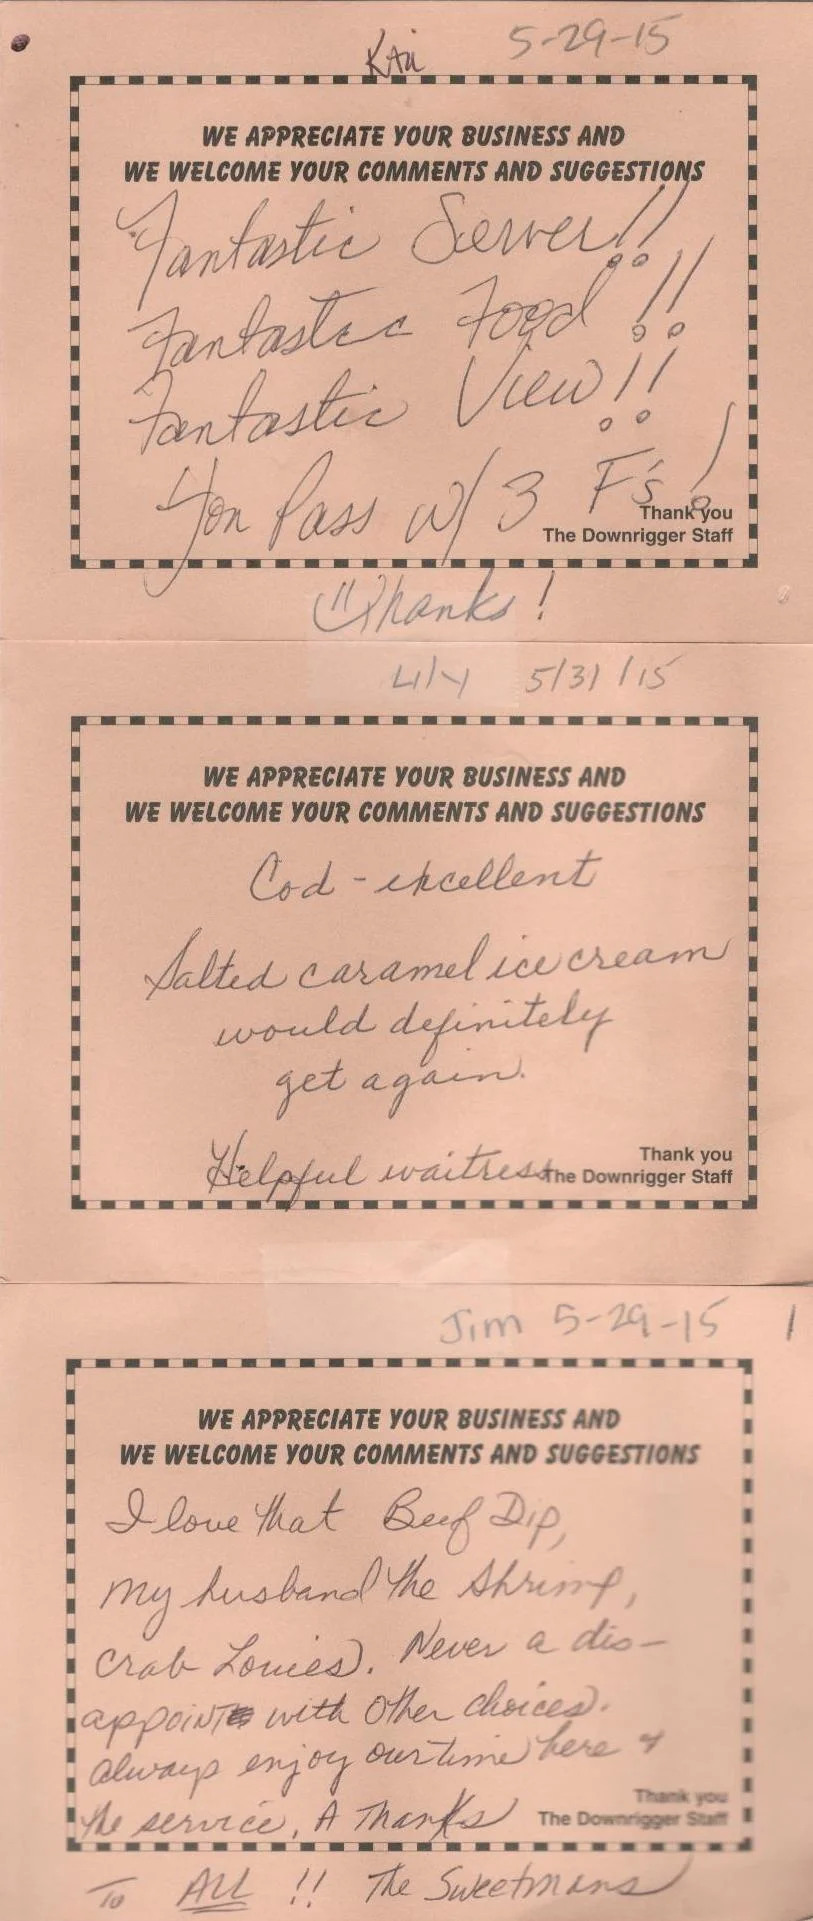 Kai 5-29-15
WE APPRECIATE YOUR BUSINESS AND
WE WELCOME YOUR COMMENTS AND SUGGESTIONS
Fantastic Server!!
Fantastic Food!!
Fantastic View!!
You Pass w/ 3 F's!
Thank you
The Downrigger Staff
Thanks!
Lily 5/31/15
WE APPRECIATE YOUR BUSINESS AND
WE WELCOME YOUR COMMENTS AND SUGGESTIONS
Cod - excellent
Salted caramel ice cream
would definitely
get again.
Helpful waitress
Thank you
The Downrigger Staff
Jim 5-29-15
WE APPRECIATE YOUR BUSINESS AND
WE WELCOME YOUR COMMENTS AND SUGGESTIONS
I love that Beef Dip,
my husband the Shrimp,
Crab Louies. Never a dis-
appoint with other choices.
always enjoy our time here &
the service. A Thanks
Thank you
The Downrigger Staff
To ALL !! The Sweetmans